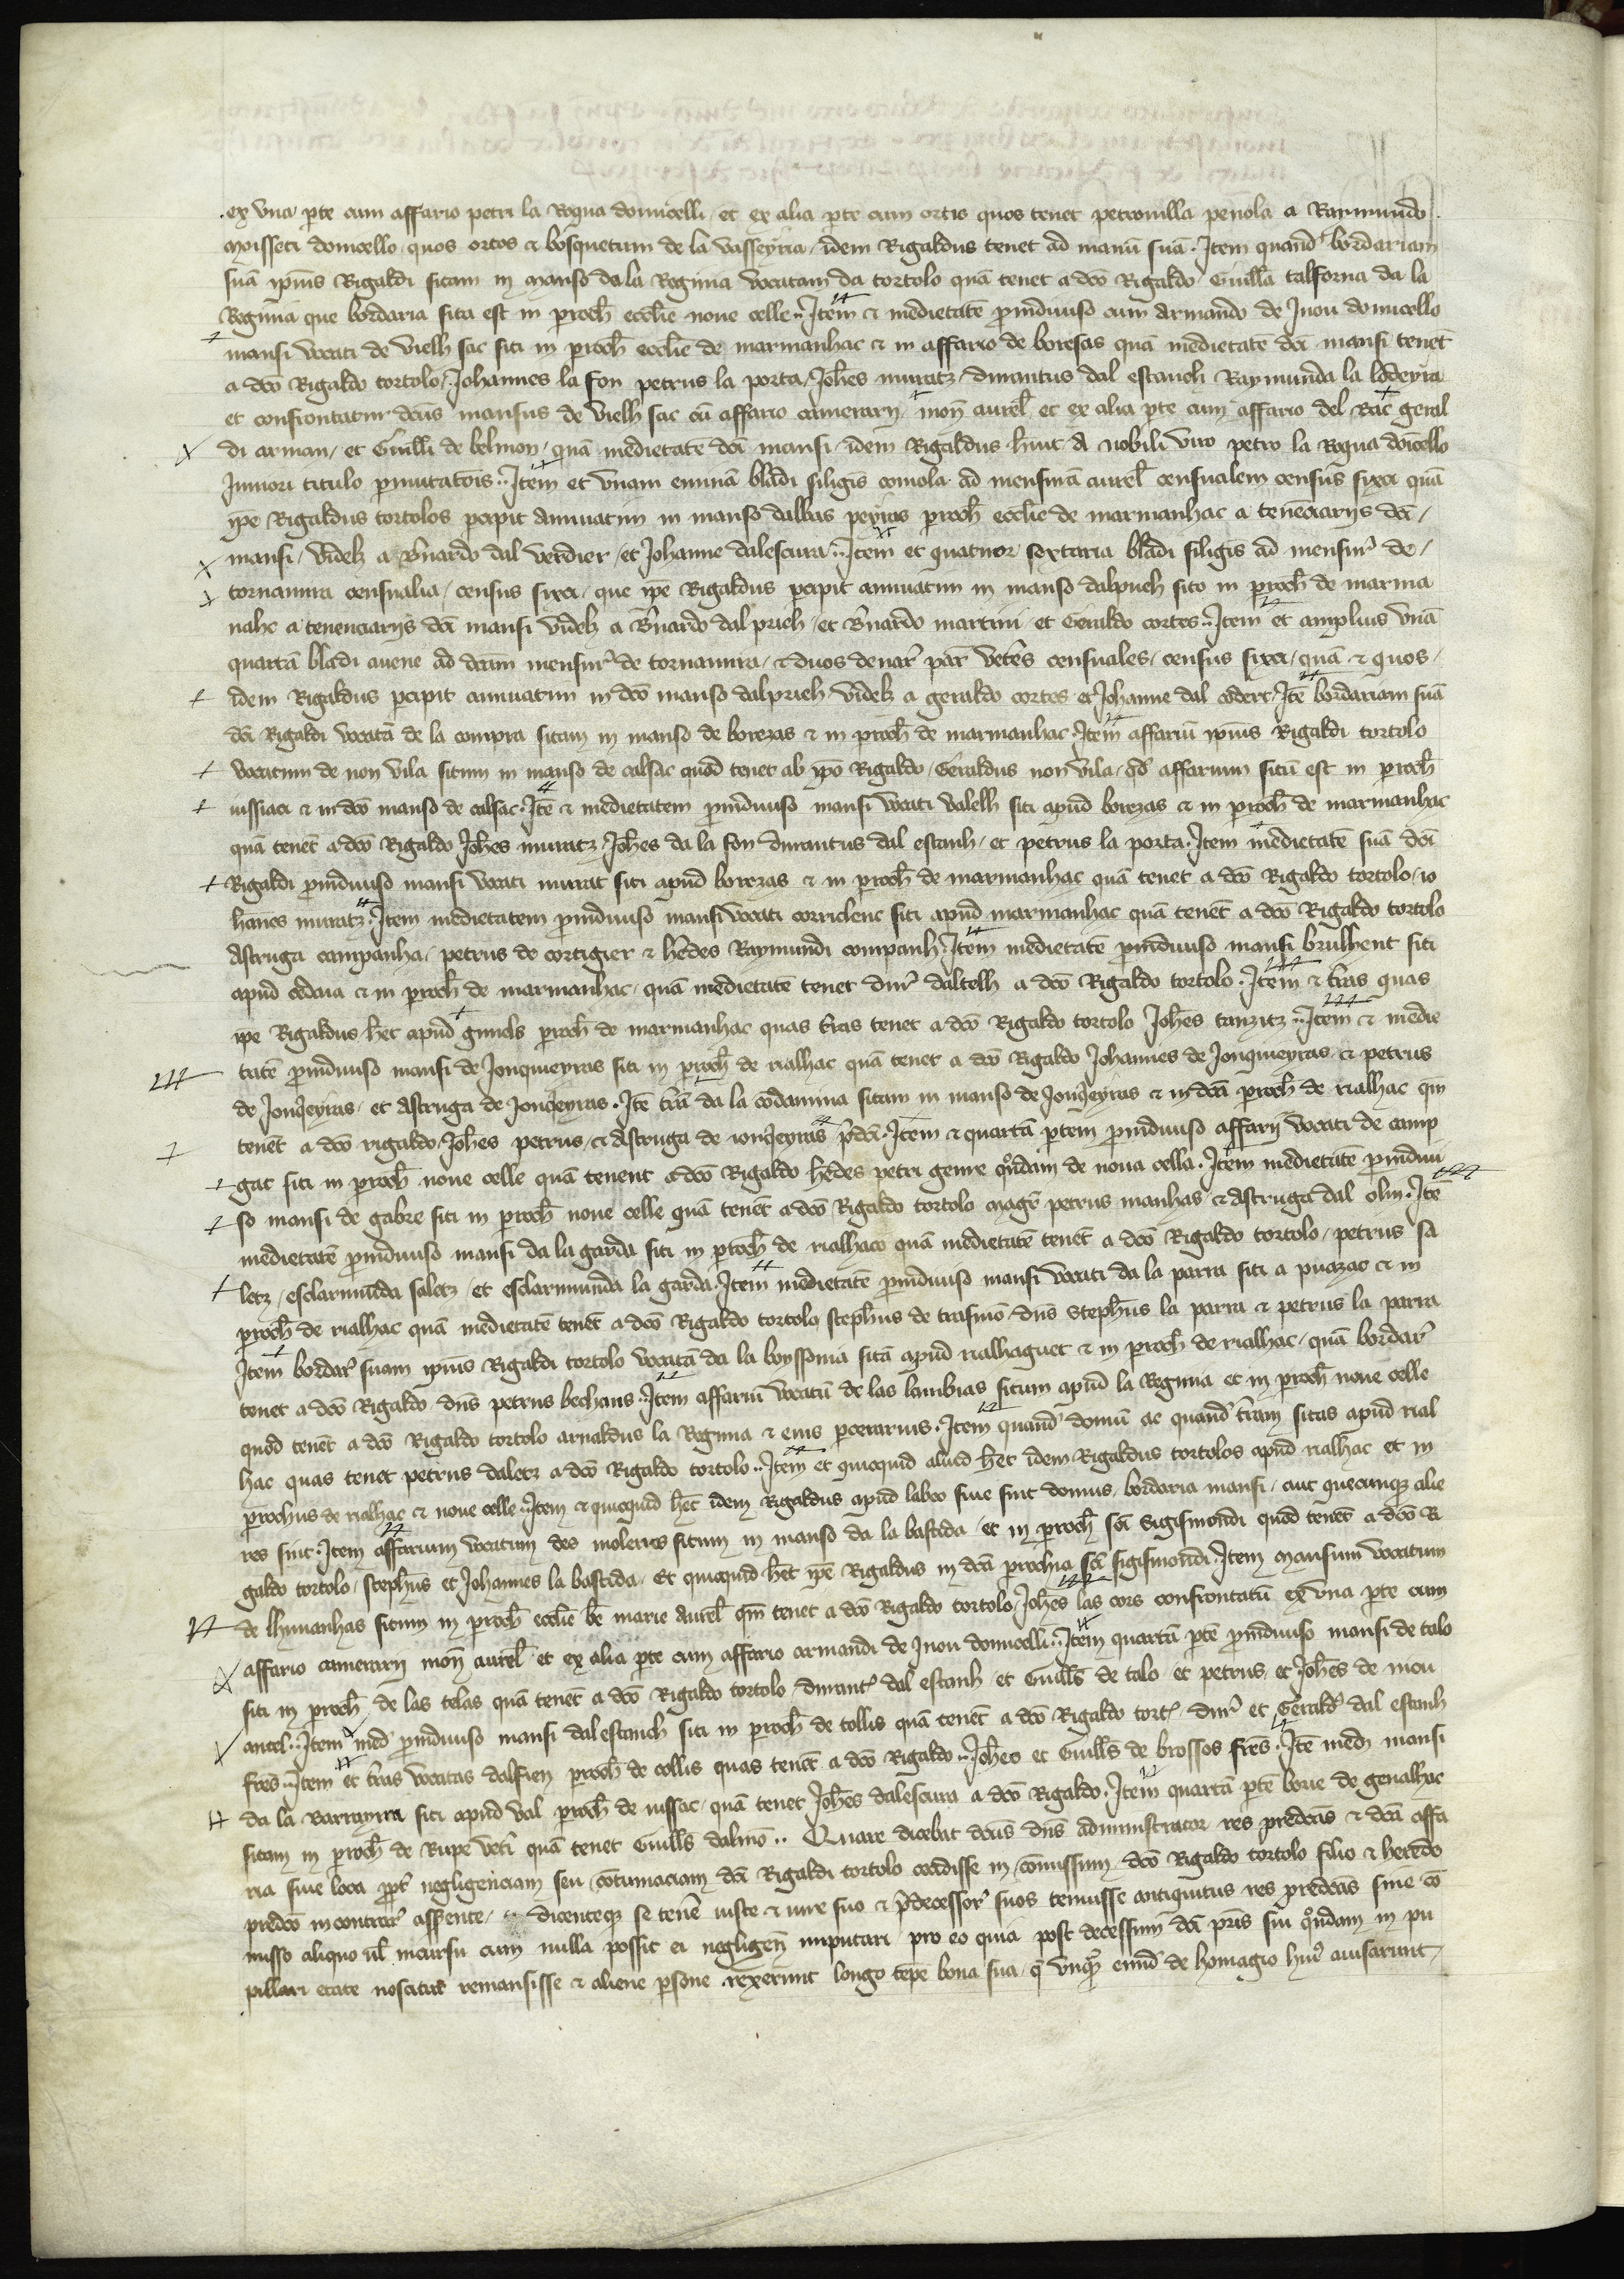 ex vna p̱te cum affario petri la Roqua domicelli et ex alia p̱te cum ortis quos tenet petronilla penola a Raymundo
Moisseti domicello quos ortos ⁊ bosquetum de la vasseyria idem Rigaldus tenet ad manū suā. Item quand̄ bordariam
suā ip̄ius Rigaldi sitam in manso da la Regima vocatam da tortolo quā tenet a dc̄o Rigaldo Guill̄a talforna da la
Regima que bordaria sita est in p̱och̄ ecclīe noue celle. Item ⁊ medietatē p̱indiuiso cum Armando de Inou domicello
mansi vocati de vielh sac siti in p̱och̄ ecclīe de marmanhac ⁊ in affario de boresas quā medietatē dc̄i mansi tenēt
a dc̄o Rigaldo tortolo Johannes la fon petrus la porta Joh̄es muratz durantus dal estanch Raymunda la
et confrontatur dc̄us mansus de vielh sac cū affario camerarij mon̄ aurel̄ et ex alia p̱te cum affario del Rac geral
di arman et Guill̄i de belmon quā medietatē dc̄i mansi idem Rigaldus h̄uit a nobili viro petro la Roqua doīcello
Iuniori titulo p̱mutatōis. Item et vnam eminā bladi siliginis comola ad mensurā aurel̄ censualem census sixa quā
ip̄e Rigaldus tortolos p̱cipit annuatim in manso dalbas peyras p̱och̄ ecclīe de marmanhac a tenēciarijs dc̄i
mansi videlz a B̄nardo dal verdier et Johanne dalescura. Item et quatuor sextaria bladi siliginis ad mensur̄ de
tornamira censualia census sixa que ip̄e Rigaldus p̱cipit annuatim in manso dalpuech sito in p̱och̄ de marma
nahc a tenenciarijs dc̄i mansi videlz a B̄nardo dal puech et B̄nardo martini et Geraldo cortes. Item et amplius vnā
quartā bladi auene ad dc̄am mensur̄ de tornamira ⁊ duos denar̄ par̄ vetēs censuales census sixa quā ⁊ quos
idem Rigaldus p̱cipit annuatim in dc̄o manso dalpueh videlz a geraldo cortes et Johanne dal coderc. Itē bordariam suā
dc̄i Rigaldi vocatā de la compra sitam in manso de borezas ⁊ in p̱och̄ de marmanhac. Item affariū ip̄ius Rigaldi tortolo
vocatum de non vila situm in manso de calsac quod tenet ab ip̄o Rigaldo Geraldus non vila qd̄ affarium situ est in p̱och̄
iussiaci ⁊ in dc̄o manso de calsac. Itē ⁊ medietatem p̱indiuiso mansi vocati valelh siti apud borezas ⁊ in p̱och̄ de marmanhac
quā tenēt a dc̄o Rigaldo Joh̄es muratz Joh̄es da la fon durantus dal estanh et petrus la porta. Item medietatē suā dc̄i
Rigaldi p̱indiuiso mansi vocati murat siti apud borezas ⁊ in p̱och̄ de marmanhac quā tenet a dc̄o Rigaldo tortolo io
hanes muratz. Item medietatem p̱indiuiso mansi vocati corridenc siti apud marmanhac quā tenēt a dc̄o Rigaldo tortolo
Astruga campanha petrus de cortigier ⁊ h̄edes Raymundi companh. Item medietatē p̱indiuiso mansi brulhent siti
apud cedaia ⁊ in p̱och̄ de marmanhac quā medietatē tenet dur̄ daltelh a dc̄o Rigaldo tortolo. Item ⁊ t̄ras quas
ip̄e Rigaldus h̄et apud gimels p̱och̄ de marmanhac quas t̄ras tenet a dc̄o Rigaldo tortolo Joh̄es tanzitz. Item ⁊ medie
tatē p̱indiuiso mansi de Jonquieyras siti in p̱och̄ de rialhac quā tenet a dc̄o Rigaldo Johannes de Jonquieyras ⁊ petrus
de Jonq̄eyras et Astruga de Jonq̄eyras. Itē t̄rā da la codamina sitam in manso de Jonq̄eyras ⁊ in dc̄a p̱och̄ de rialhac qm̄
tenēt a dc̄o rigaldo Joh̄es petrus ⁊ Astruga de ionq̄eyras p̄dc̄i. Item ⁊ quartā p̱tem p̱indiuiso affarij vocati de camp
gac siti in p̱och̄ noue celle quā tenent a dc̄o Rigaldo h̄edes petri genre q̊ndam de noua cella. Item medietatē p̱indiui
so mansi de gabre siti in p̱och̄ noue celle quā tenēt a dc̄o Rigaldo tortolo maḡr petrus manhas ⁊ Astruga dal olm. Itē
medietatē p̱indiuiso mansi da la garda siti in p̱och̄ de rialhaco quā medietatē tenēt a dc̄o Rigaldo tortolo petrus sa
letz esclarmūda saletz et esclarmunda la garda. Item medietatē p̱indiuiso mansi vocati da la parra siti a puazac ⁊ in
p̱och̄ de rialhac quā medietatē tenēt a dc̄o Rigaldo tortolo steph̄us de trasmō dn̄s Steph̄us la parra ⁊ petrus la parra
Item bordar̄ suam ip̄ius Rigaldi tortolo vocatā da la boyssonia sitā apud rialhaguet ⁊ in p̱och̄ de rialhac quā bordar̄
tenet a dc̄o Rigaldo dn̄s petrus bechans. Item affariū vocatū de las lambias situm apud la Regima et in p̱och̄ noue celle
quod tenēt a dc̄o Rigaldo tortolo arnaldus la Regima ⁊ eius p̱cerarius. Item quand̄ domū ac quand̄ t̄ram sitas apud rial
hac quas tenet petrus daletz a dc̄o Rigaldo tortolo. Item et quicquid aliud h̄et idem Rigaldus tortolos apud rialhac et in
p̱ochijs de rialhac ⁊ noue celle. Item ⁊ quicquid h̄et idem Rigaldus apud labeo siue sint domus bordaria mansi aut quecunq̄ alie
res sint. Item affarium vocatum des moleires situm in manso da la bastida et in p̱och̄ sc̄i Sigismondi quod tenēt a dc̄o Ri
galdo tortolo steph̄us et Johannes la bastida. Et quicquid h̄et ip̄e Rigaldus in dc̄a p̱ochia sc̄i sigismondi. Item Mansum vocatum
de lhimanhas situm in p̱och̄ ecclīe bē marie Aurel̄ qm̄ tenet a dc̄o Rigaldo tortolo Joh̄es las cors confrontatū ex vna p̱te cum
affario camerarij mon̄ aurel̄ et ex alia p̱te cum affario armandi de Inou domicelli. Item quartā p̱tē p̱indiuiso mansi de talo
siti in p̱och̄ de las telas quā tenēt a dc̄o Rigaldo tortolo durant̄ dal estanh et Guill̄s de talo et petrus et Joh̄es de mou
antel. Item med̄ p̱indiuiso mansi dal estanch siti in p̱och̄ de tollis quā tenēt a dc̄o Rigaldo tort̄ dur̄ et Gerald̄ dal estanh
fr̄es. Item et t̄ras vocatas dalfieu p̱och̄ de collis quas tenēt a dc̄o Rigaldo. Joh̄es et Guill̄s de brossos fr̄es. Itē med̄ mansi
da la Barrayria siti apud val p̱och̄ de iussac quā tenet Joh̄es dalescura a dc̄o Rigaldo. Item quartā p̱tē borie de genalhac
sitam in p̱och̄ de Rupe vet̄i quā tenet Guill̄s dalmō. Quare dicebat dc̄us dn̄s administrator res predc̄as ⁊ dc̄a affa
ria siue loca p̱pt̄ negligenciam seu cōtumaciam dc̄i Rigaldi tortolo cecidisse in cōmissum dc̄o Rigaldo tortolo filio ⁊ herede
predc̄o incontrar̄ asserente dicenteq̄ se tenē iuste ⁊ iure suo ⁊ p̄decessor̄ suos tenuisse antiquitus res predc̄as sine cō
misso aliquo vl̄ incursu cum nulla possit ei negligen̄ imputari pro eo quia post decessum dc̄i pr̄is sui q̊ndam in pu
pillari etate noscatur remansisse ⁊ aliene p̱sone rexerunt longo tēpe bona sua q̄ vnq̄ȝ eund̄ de homagio hui⁹ auisarunt